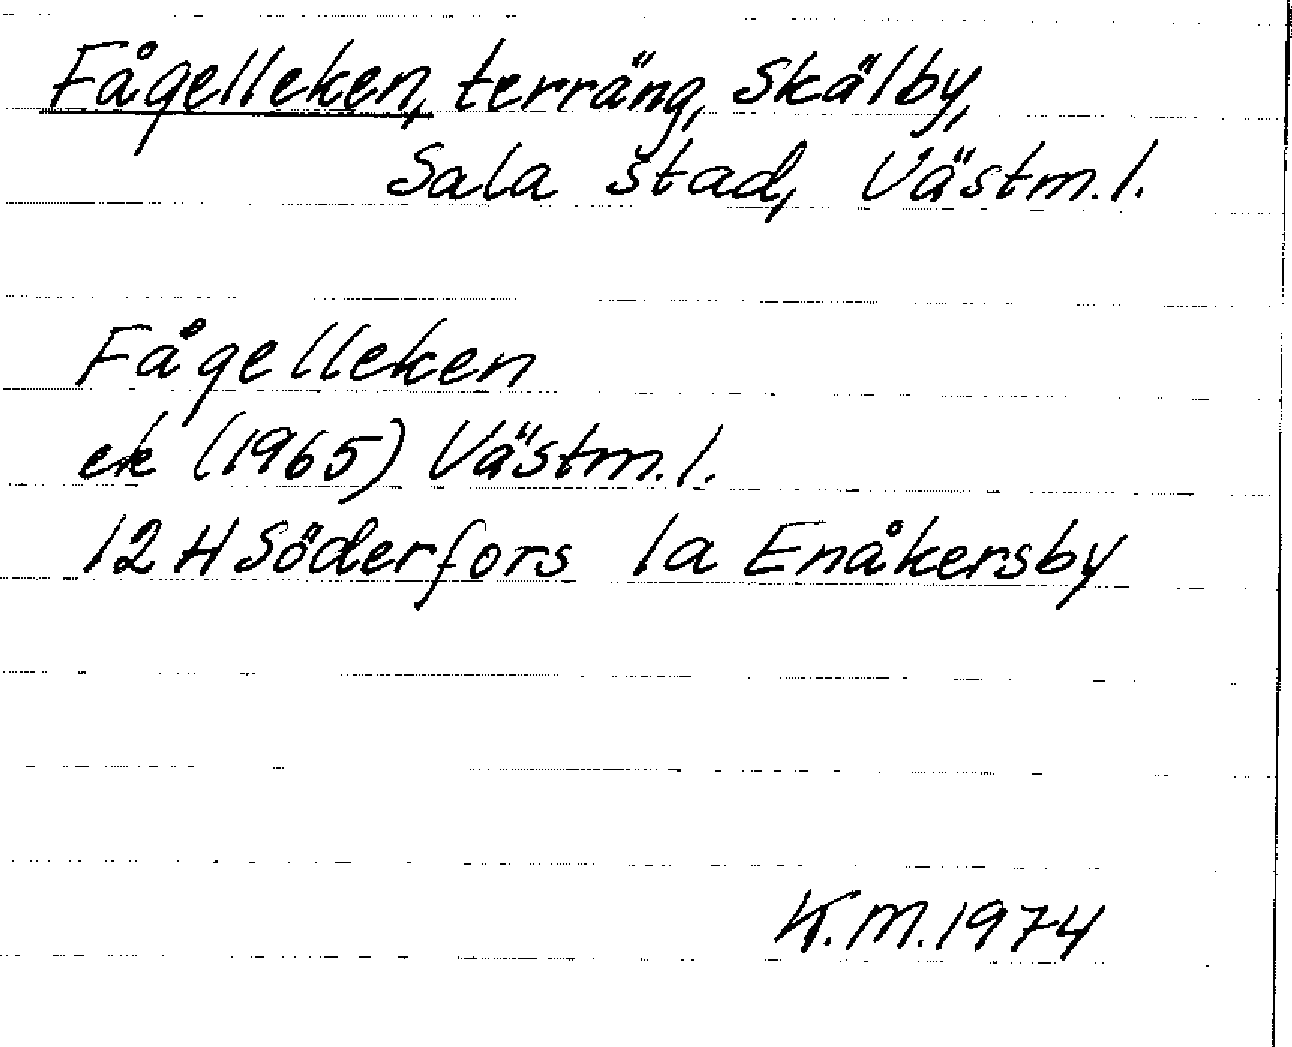 Fågelleken, terräng, Skälby,
Sala stad, Västm.l.
Fågelleken
ek (1965) Västm.l.
12 H Söderfors 1a Enåkersby
K.M.1974